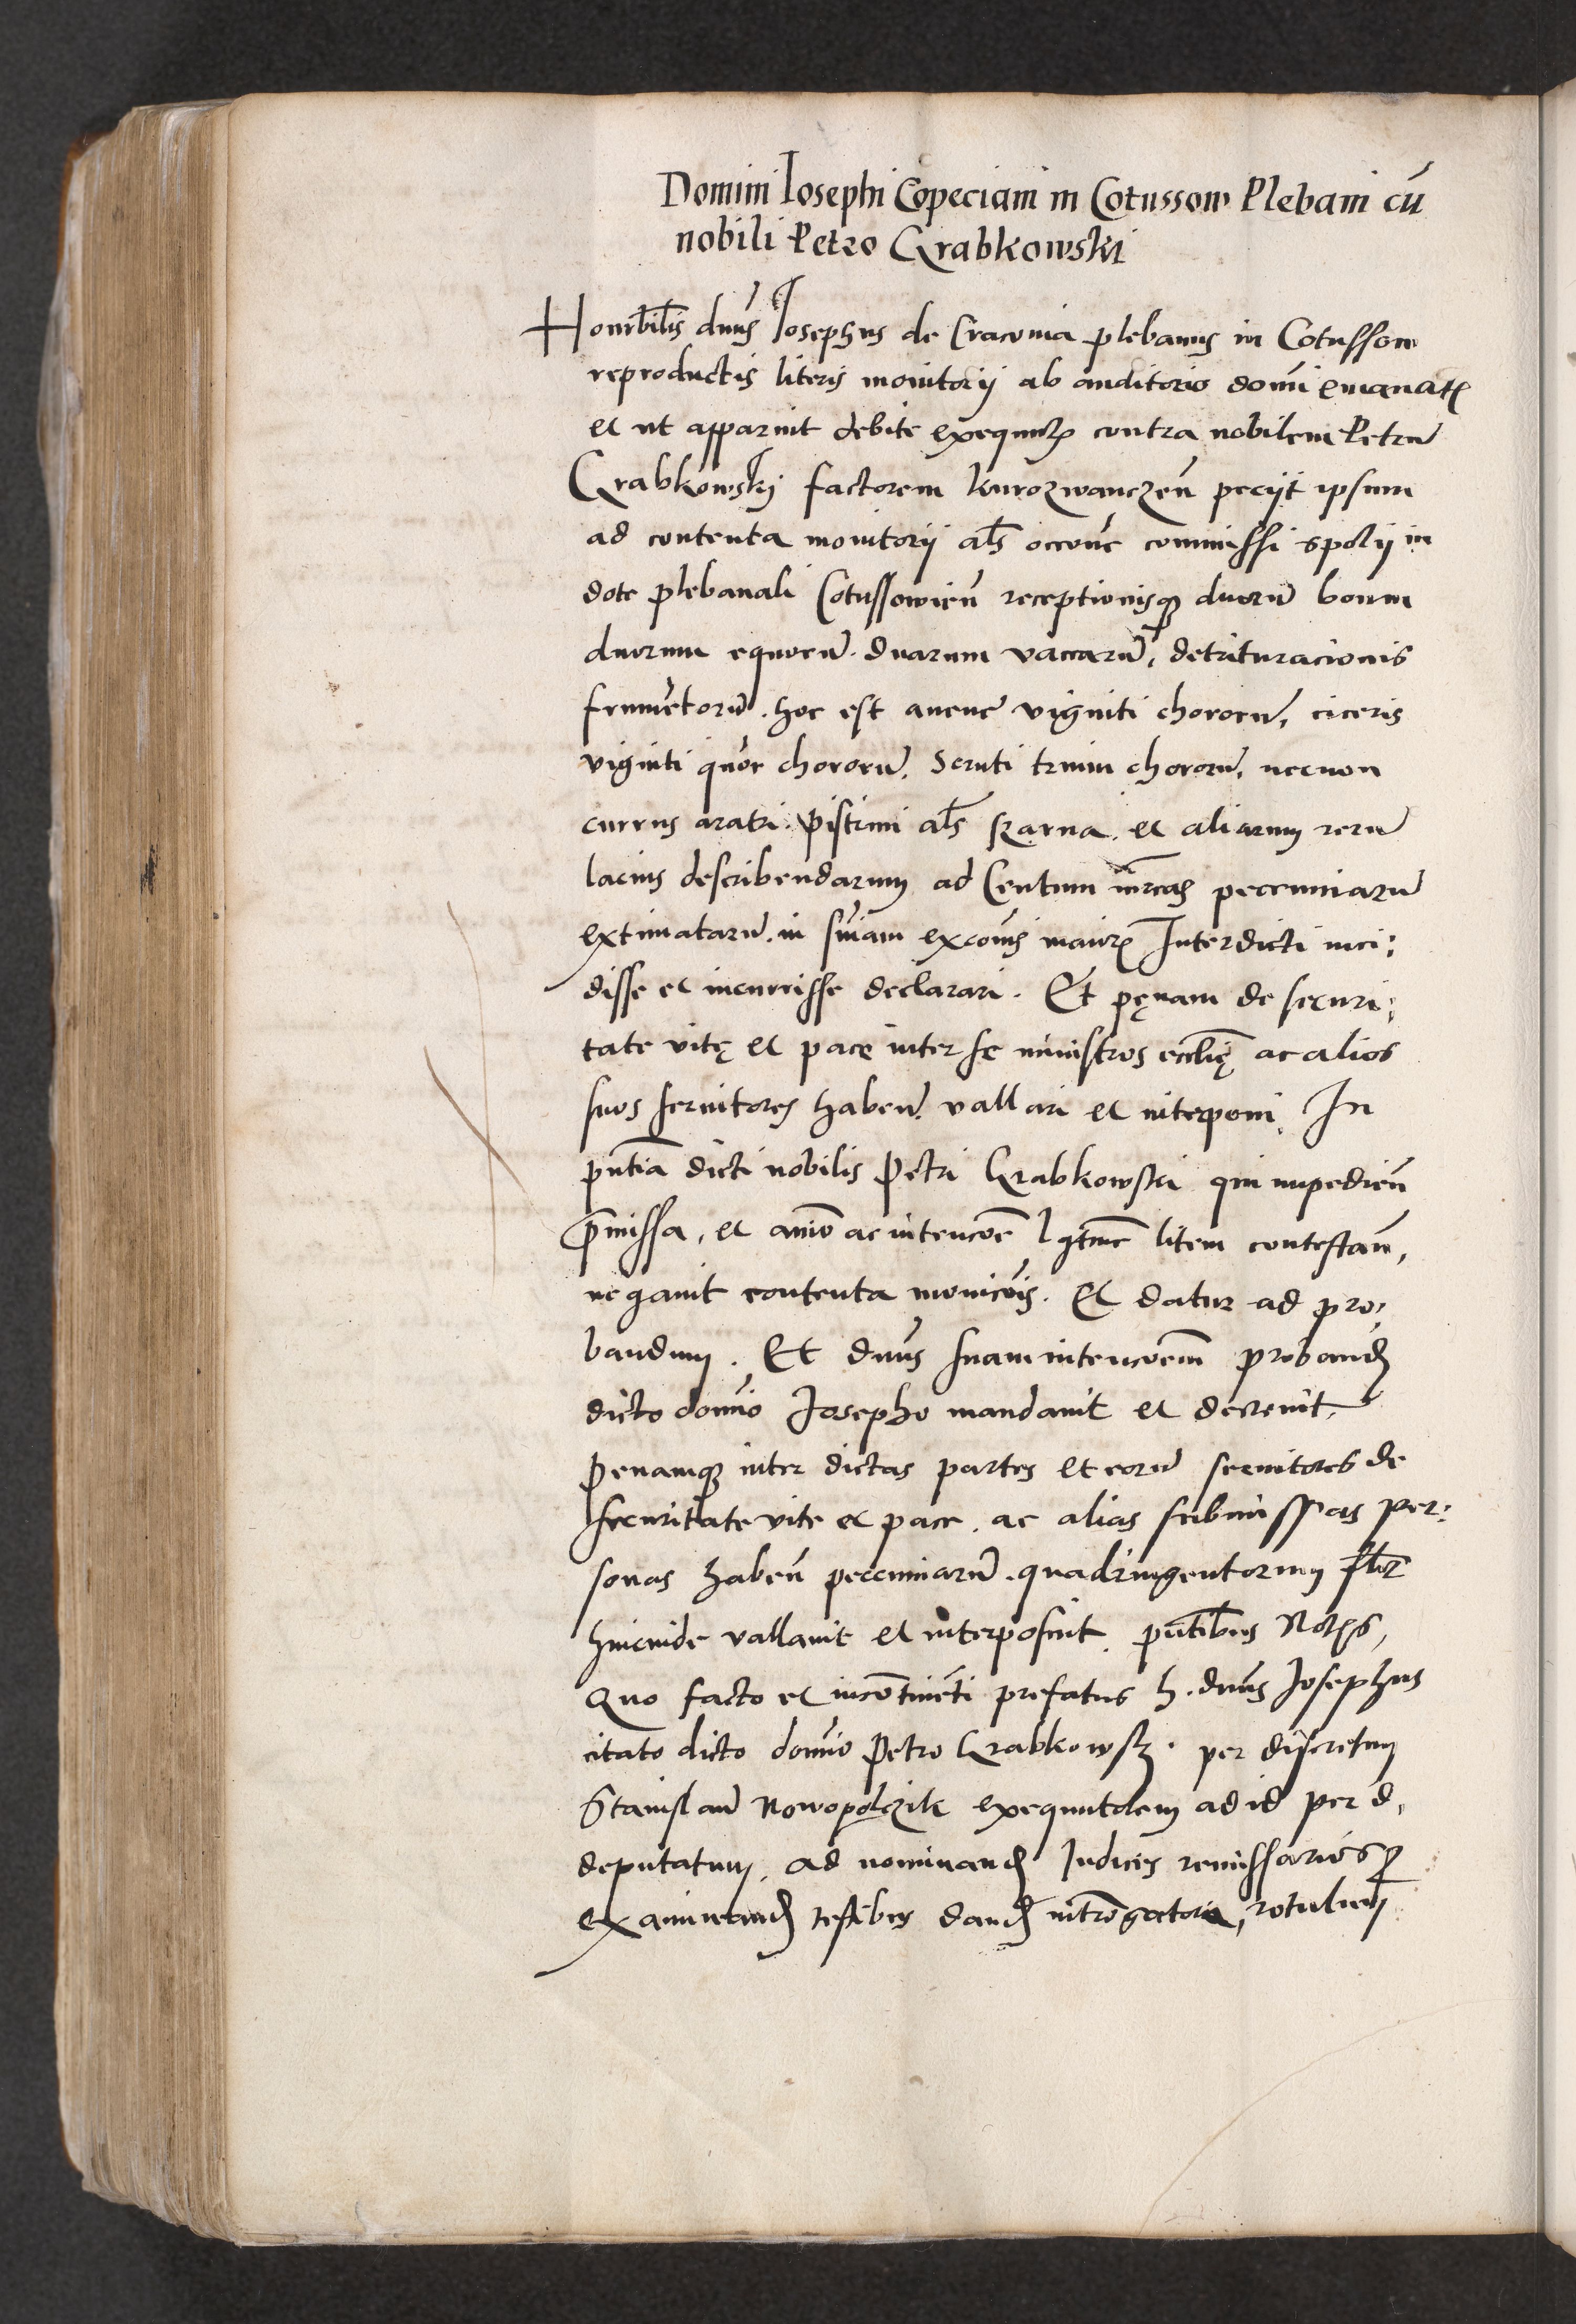 Domini Iosephi Copeciani in Cotussow Plebani cū
nobili Petro Grabkowski
Honorabilis dnus Iosephus de Cracovia plebanus in Cotussow
reproductis literis monitorij ab auditorio domini emanatis
et ut apparuit debite exequutis contra nobilem Petrū
Grabkowskj factorem kurozwanczeñ peciit ipsum
ad contenta monitorij als occoñe commissi spolij in
dote plebanali Cotussowień receptionisq3 duorū boum
duorum equorū. duarum vaccarū, detrituracionis
frumētorū. hoc est avene viginti chororū, ciceris
viginti quōr chororū. Scruti trium chororū, necnon
currus aratri. Pistrini als Zarna. et aliarum rerū
lacius describendarum ad Centum mrcas peccuniarū
extimatarū. in sniam excoñis maioris Interdicti inci:
disse et incurrisse declarari. Et pęnam de securi:
tate vitę et pace inter se ministros ecclię ac alios
suos servitores habeñ. vallari et interponi. In
pntia dicti nobilis Petri Grabkowski qui impedieñ
p̄missa, et animo ac intencoē lgtime litem contestañ,
negavit contenta monicoñis. Et datur ad pro:
bandum. Et dnus suam intencoem proband
dicto domino Iosepho mandavit et decrevit.
Penamq3 inter dictas partes et eorū servitores de
securitate vite et pace. ac alias submissas per:
sonas habeñ peccuniarū. quadringentorum flor
hincinde vallavit et interposuit. pntibus Notis,
Quo facto et incōtinēti prefatus h. dnus Iosephus
citato dicto domino Petro Grabkowsk. per discretum
Stanislaū Nowopolczik exequutorem ad id per d.
deputatum. ad nominand Iudices remissarios p
examinand testibus dand intrōgatoria, rotulum